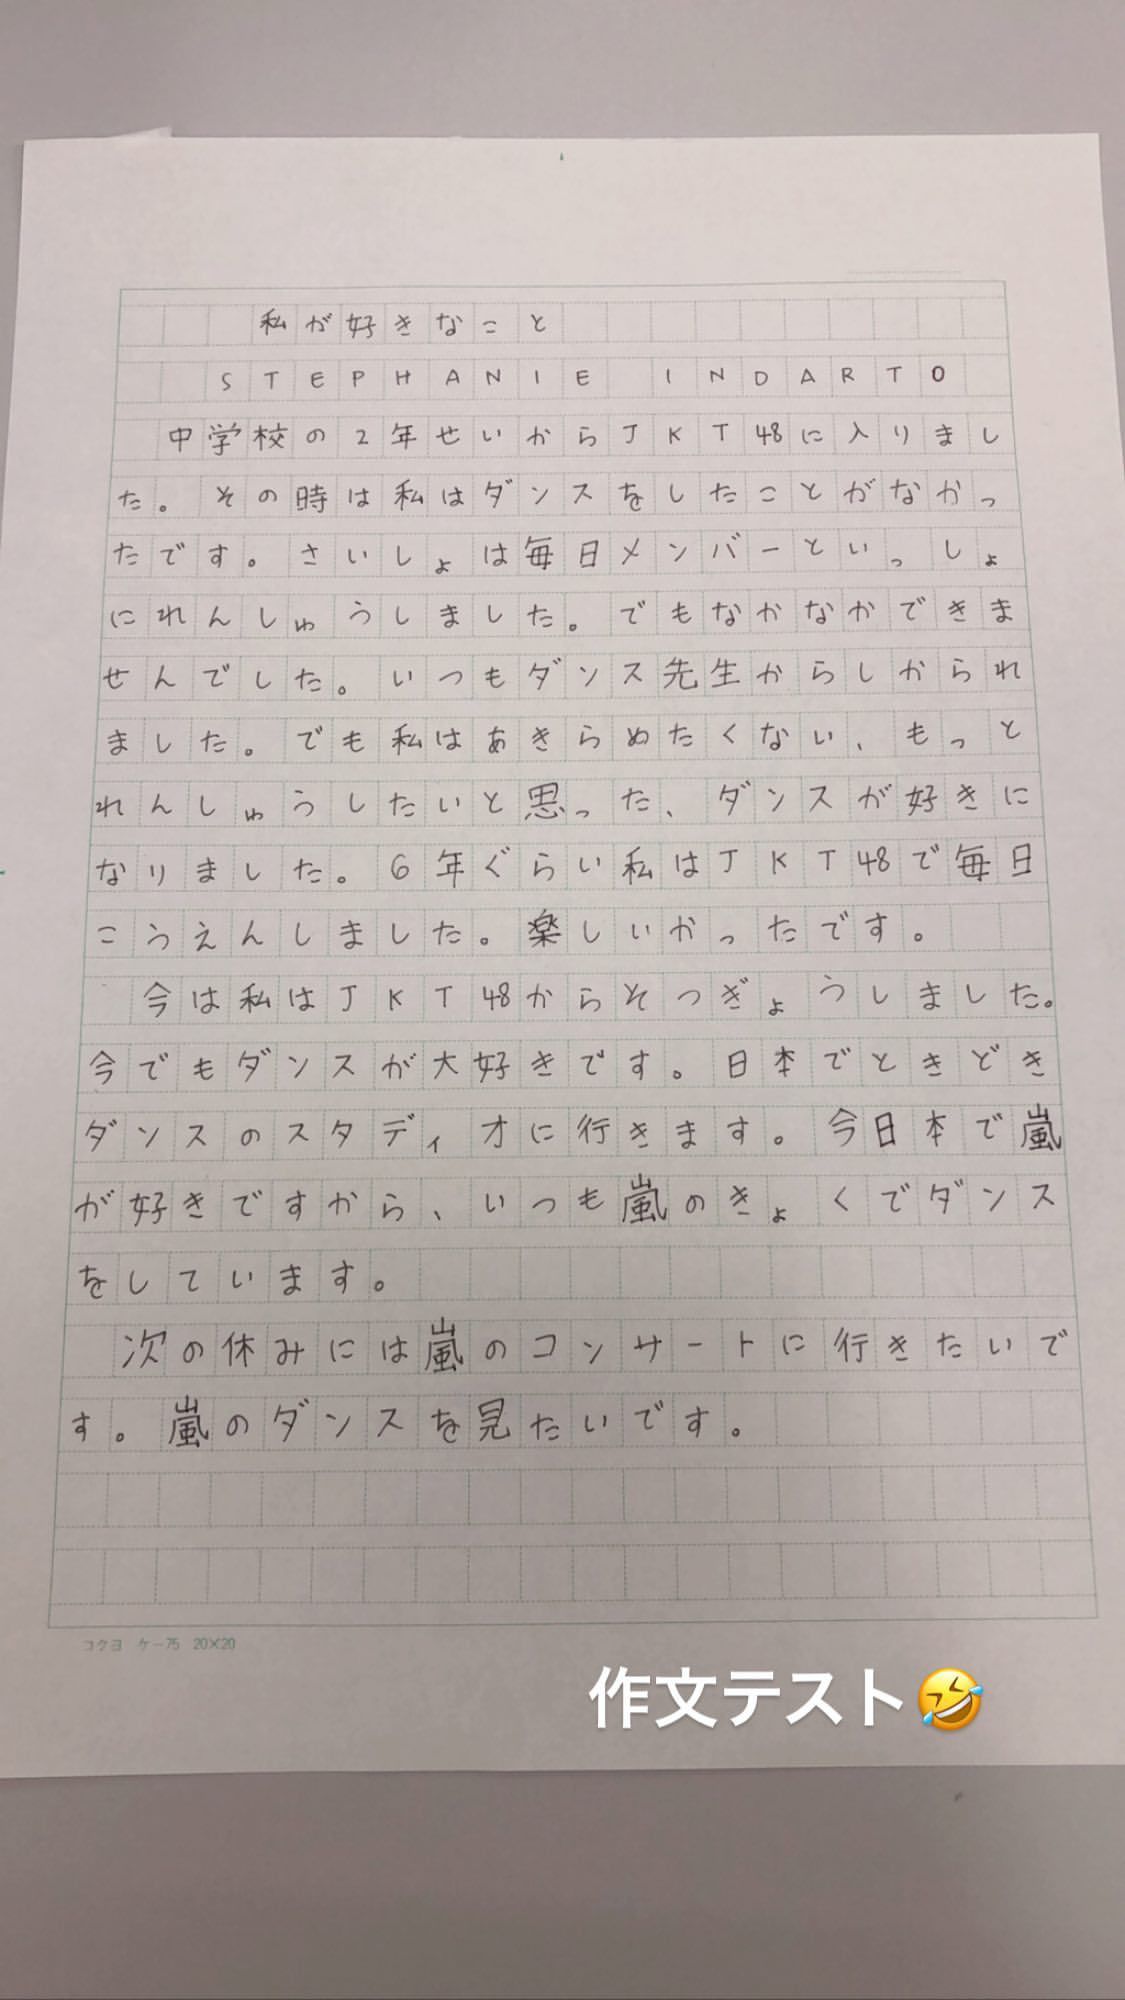 私が好きなこと
STEPHANIE INDARTO
中学校の2年せいからJKT48に入りまし
た。その時は私はダンスをしたことがなかっ
たです。さいしょは毎日メンバーといっしょ
にれんしゅうしました。でもなかなかできま
せんでした。いつもダンス先生からしかられ
ました。でも私はあきらめたくない、もっと
れんしゅうしたいと思った、ダンスが好きに
なりました。6年ぐらい私はJKT48で毎日
こうえんしました。楽しいかったです。
今は私はJKT48からそつぎょうしました。
今でもダンスが大好きです。日本でときどき
ダンスのスタディオに行きます。今日本で嵐
が好きですから、いつも嵐のきょくでダンス
をしています。
次の休みには嵐のコンサートに行きたいで
す。嵐のダンスを見たいです。
コクヨ ケー75 20×20
作文テスト🤣